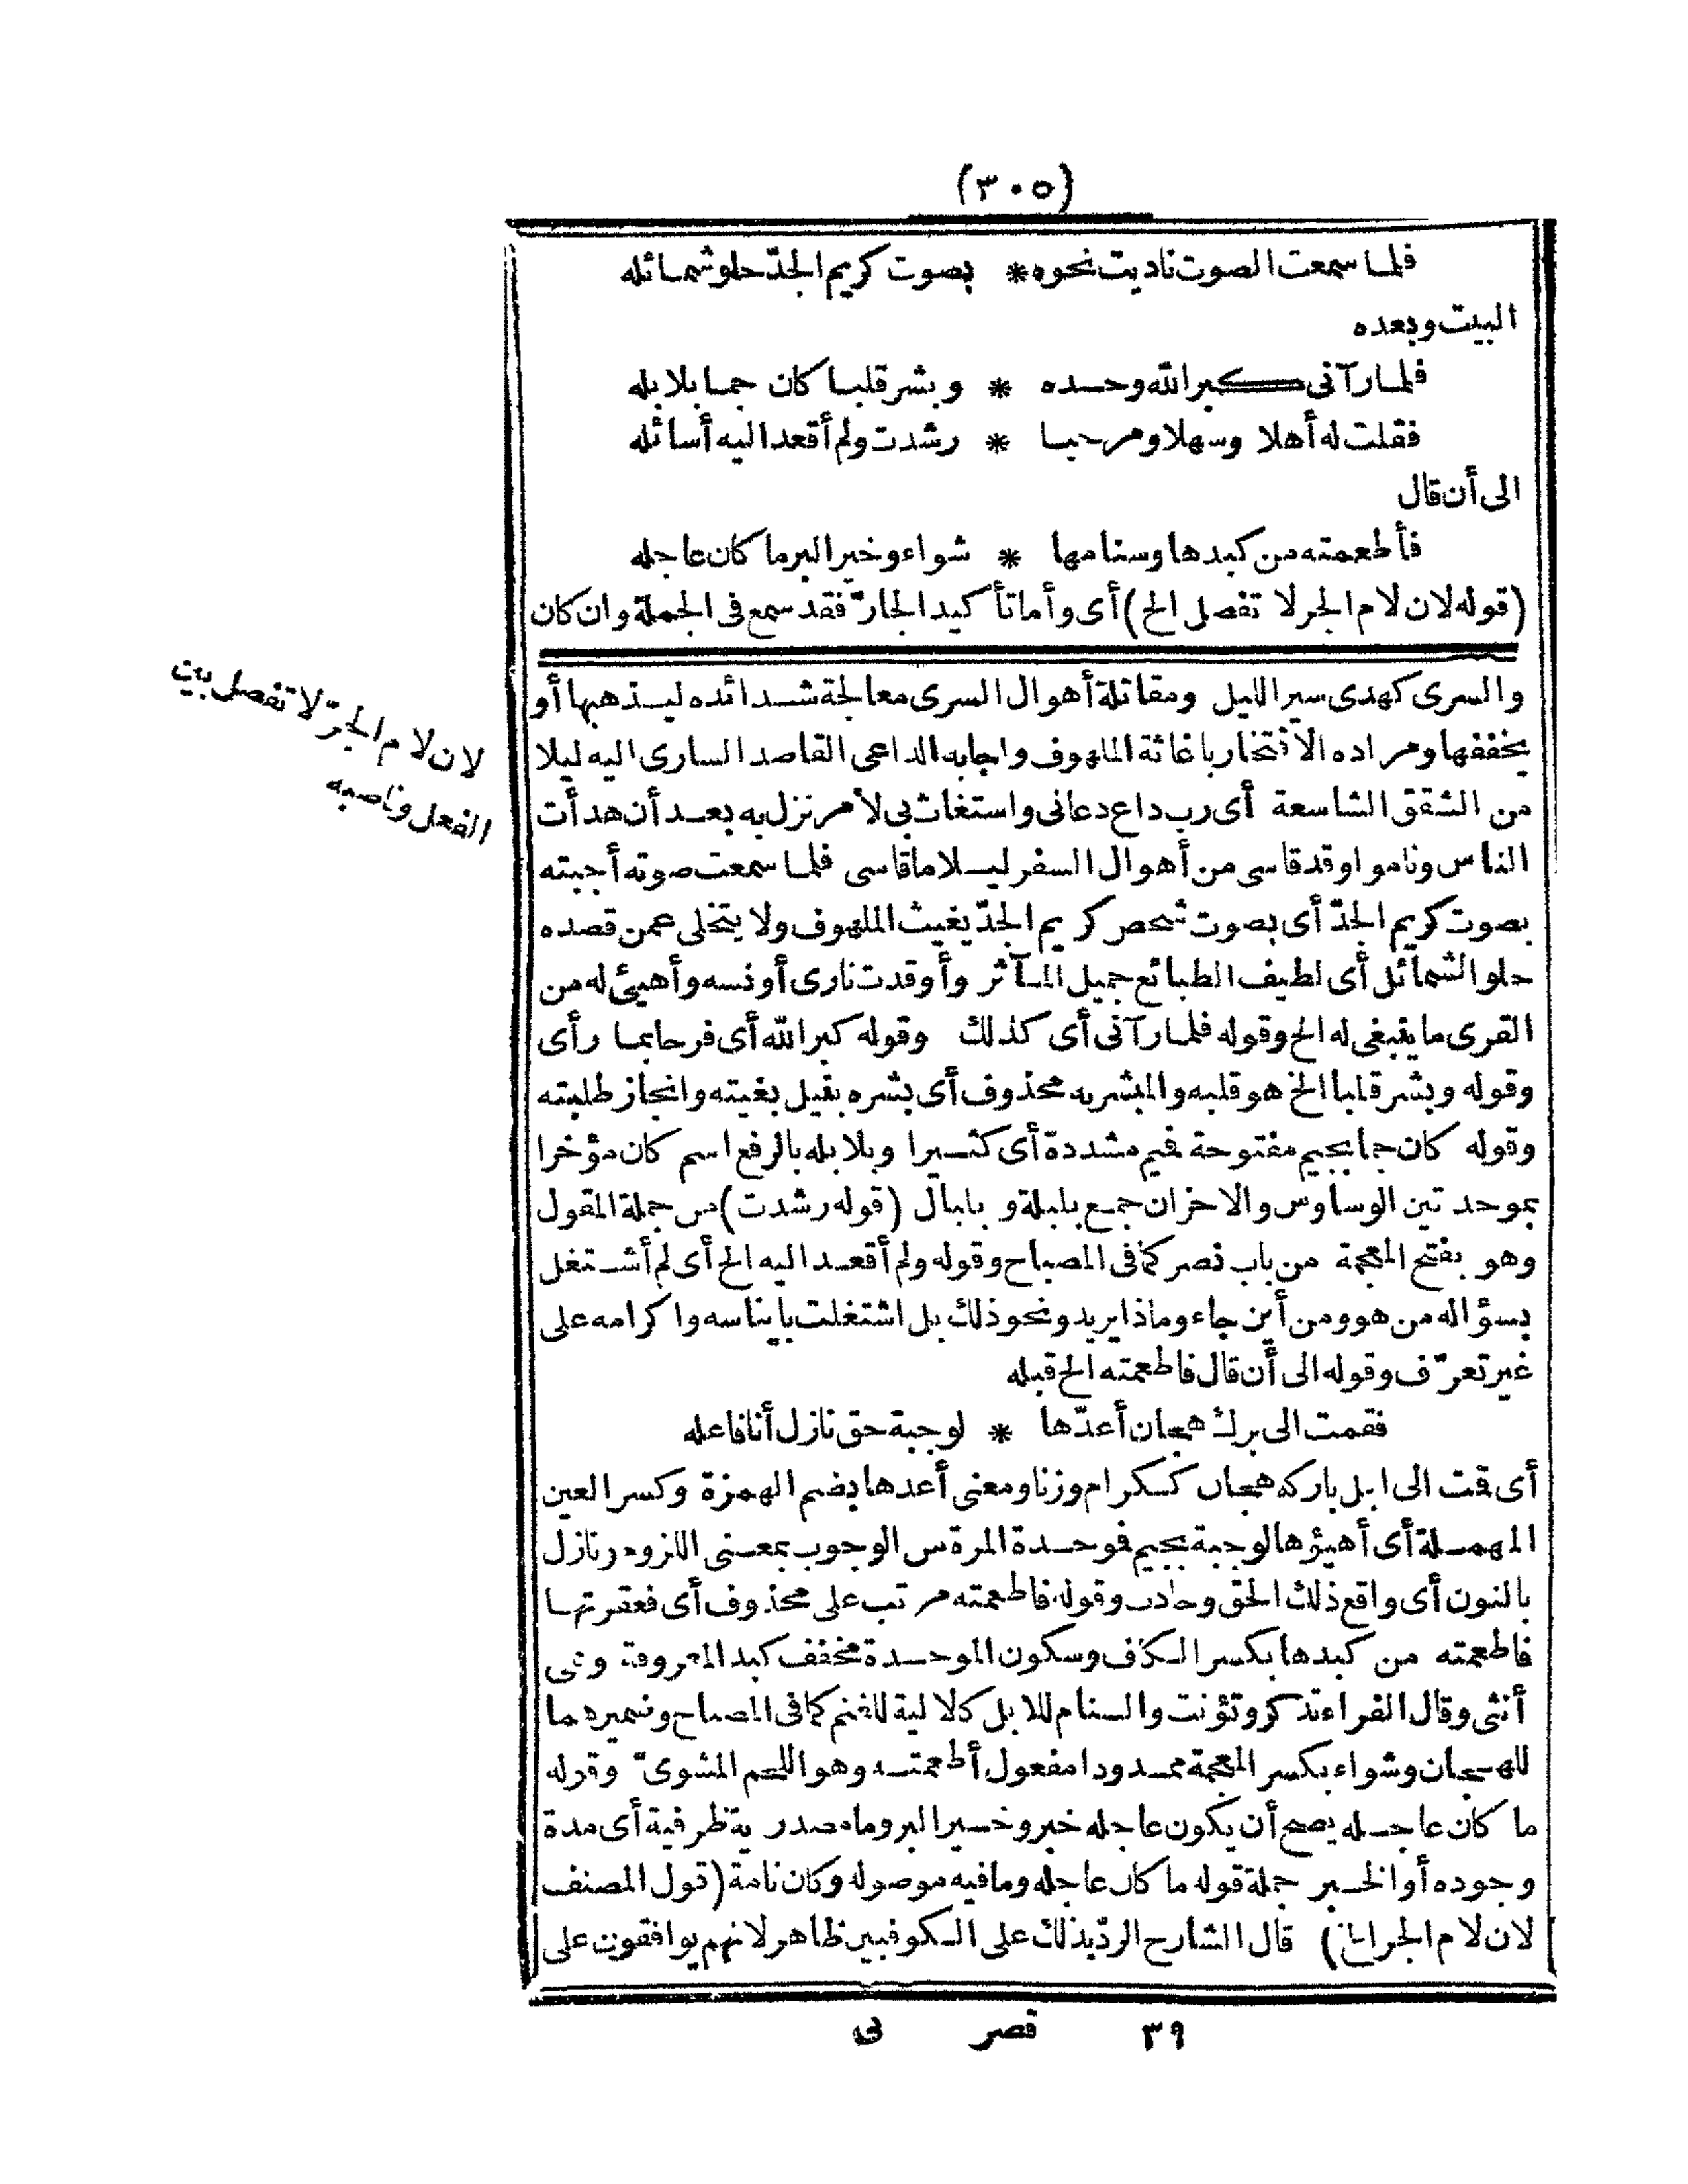 (٣٠٥)
فلما سمعت الصوت ناديت نحوه * بصوت كريم الجدّ حلو شمائله
البيت وبعده
فلما رآنى كبر الله وحده * وبشر قلبا كان جما بلابله
فقلت له أهلا وسهلا ومرحبا * رشدت ولم أقعد اليه أسائله
الى أن قال
فأطعمته من كبدها وسنامها * شواء وخير البر ما كان عاجله
(قوله لان لام الجر لا تفصل الخ) أى وأما تأكيد الجارّ فقد سمع فى الجملة وان كان
والسرى كهدى سير الليل ومقاتلة أهوال السرى معالجة شدائده ليذهبها أو
يخففها ومراده الافتخار باغاثة الملهوف واجابه الداعى القاصد السارى اليه ليلا
من الشقق الشاسعة أى رب داع دعانى واستغاث بى لأمر نزل به بعد أن هدأت
الناس وناموا وقد قاسى من أهوال السفر ليلا ما قاسى فلما سمعت صوته أجبته
بصوت كريم الجدّ أى بصوت شخص كريم الجدّ يغيث الملهوف ولا يتخلى عمن قصده
حلو الشمائل أى لطيف الطبائع جميل المآثر وأوقدت نارى أونسه وأهيئ له من
القرى ما ينبغى له الخ وقوله فلما رآنى أى كذلك وقوله كبر الله أى فرحا بما رأى
وقوله وبشر قلبا الخ هو قلبه والمبشر به محذوف أى بشره بنيل بغيته وانجاز طلبته
وقوله كان جما بجيم مفتوحة فميم مشددة أى كثيرا وبلابله بالرفع اسم كان مؤخرا
بموحدتين الوساوس والاحزان جمع بلبلة و بلبال (قوله رشدت) من جملة المقول
وهو بفتح المعجمة من باب نصر كما فى المصباح وقوله ولم أقعد اليه الخ أى لم أشتغل
بسؤاله من هو ومن أين جاء وماذا يريد ونحو ذلك بل اشتغلت بايناسه واكرامه على
غير تعرّف وقوله الى أن قال فاطعمته الخ قبله
فقمت الى برك هجان أعدّها * لوجبة حق نازل أنا فاعله
أى قت الى ابل باركه هجان ككرام وزنا ومعنى أعدها بضم الهمزة وكسر العين
المهملة أى أهيؤها لوجبة بجيم فوحدة المرة من الوجوب بمعنى اللزوم ونازل
بالنون أى واقع ذلك الحق وحادث وقوله فاطعمته مرتب على محذوف أى فعقرتها
فاطعمته من كبدها بكسر الكاف وسكون الموحدة مخفف كبد المعروفة وهى
أنثى وقال الفراء تذكر وتؤنث والسنام للابل كالالية للغنم كما فى المصباح وضمير هما
للهجان وشواء بكسر المعجمة ممدودا مفعول أطعمته وهو اللحم المشوىّ وقوله
ما كان عاجله يصح أن يكون عاجله خبر وخير البر وما مصدرية ظرفية أى مدة
وجوده أو الخبر جملة قوله ما كان عاجله وما فيه موصوله وكان تامة (قول المصنف
لان لام الجر الخ) قال الشارح الردّ بذلك على الكوفيين ظاهر لانهم يوافقون على
٣٩ قصر نى
لان لام الجرّ لا تفصل بين
الفعل وناصبه